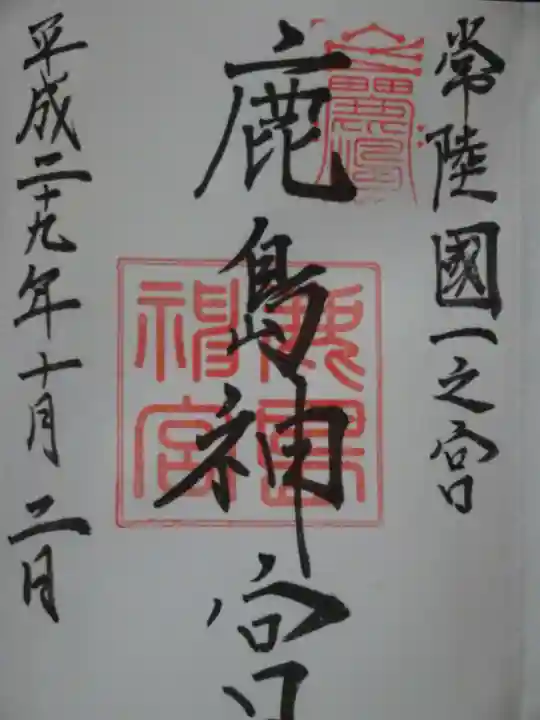 常陸國一之宮
鹿島神宮
鹿島神宮
平成二十九年十月二日